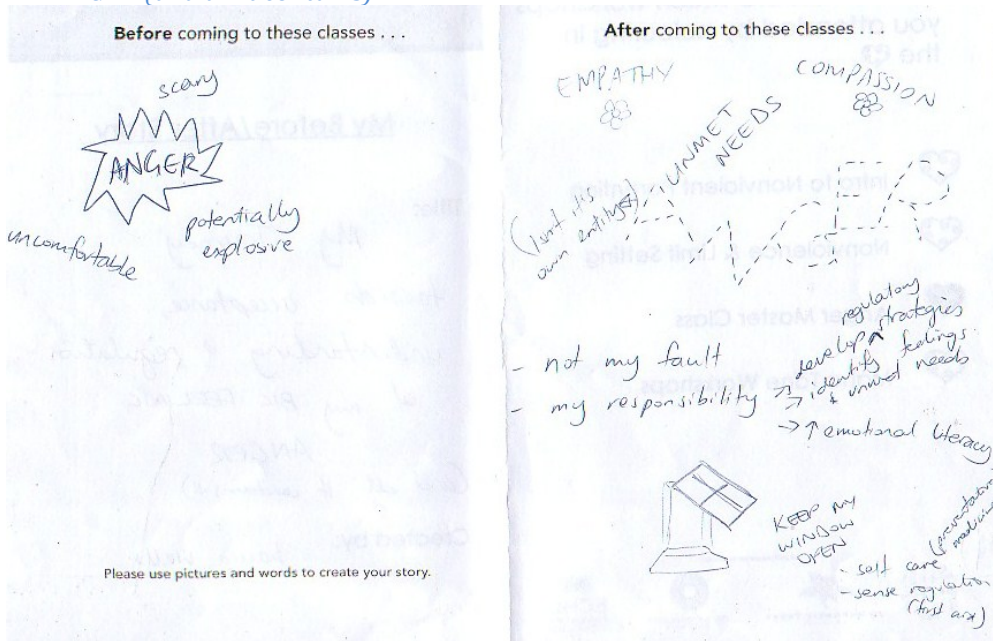 Before coming to these classes . . .
scary
ANGER
potentially
explosive
uncomfortable
Please use pictures and words to create your story.
After coming to these classes . . .
EMPATHY
COMPASSION
UNMET
NEEDS
(isn't its
own entity)
- not my fault
- my responsibility
→ develop regulatory strategies
→ identify feelings
& unmet needs
→ ↑ emotional literacy
KEEP MY
WINDOW
OPEN
- self care (preventative
medicine)
- sense regulation
(first aid)